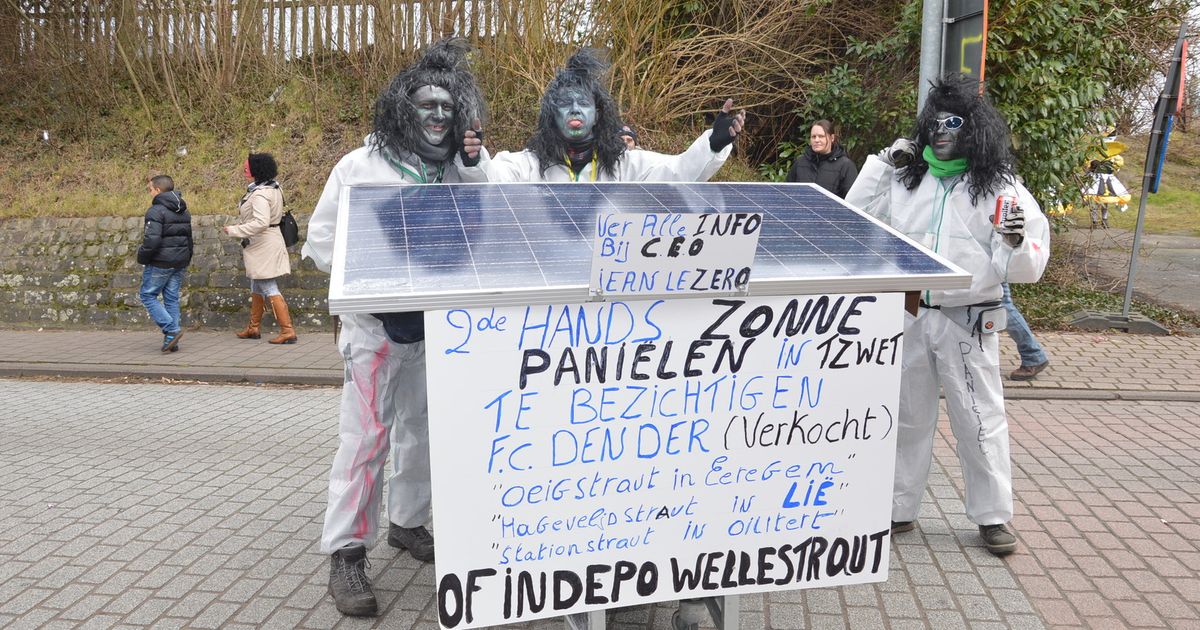 Ver Alle INFO
Bij C.E.O
JEAN LEZERO
2de HANDS ZONNE
PANIËLEN in TZWET
TE BEZICHTIGEN
F.C. DENDER (Verkocht)
"OEIGSTRAUT in EEREGEM"
"HAGEVELDSTRAUT in LIË"
"STATIONSTRAUT in OILITERT"
OF INDEPO WELLESTROUT
PANIEL